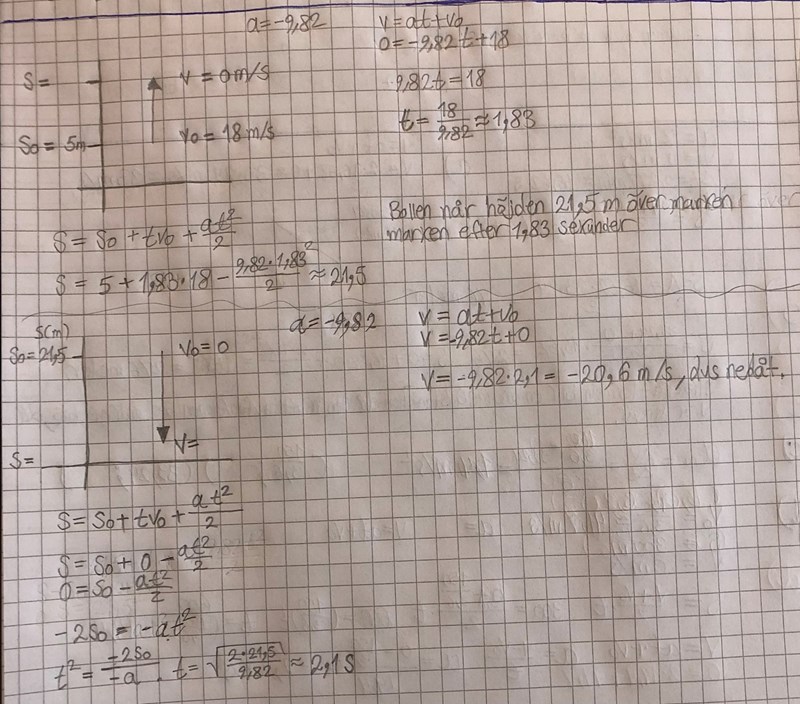 a = -9,82
v = at + v₀
0 = -9,82t + 18
s =
v = 0 m/s
9,82t = 18
s₀ = 5m
v₀ = 18 m/s
t = 18/9,82 ≈ 1,83
Bollen når höjden 21,5 m över marken
marken efter 1,83 sekunder
s = s₀ + tv₀ + at²/2
s = 5 + 1,83·18 - 9,82·1,83²/2 ≈ 21,5
s(m)
a = -9,82
v = at + v₀
s₀ = 21,5
v₀ = 0
v = -9,82t + 0
v = -9,82·2,1 = -20,6 m/s, dvs nedåt.
v =
s =
s = s₀ + tv₀ + at²/2
s = s₀ + 0 - at²/2
0 = s₀ - at²/2
-2s₀ = -at²
t² = -2s₀/-a . t = √(2·21,5/9,82) ≈ 2,1 s